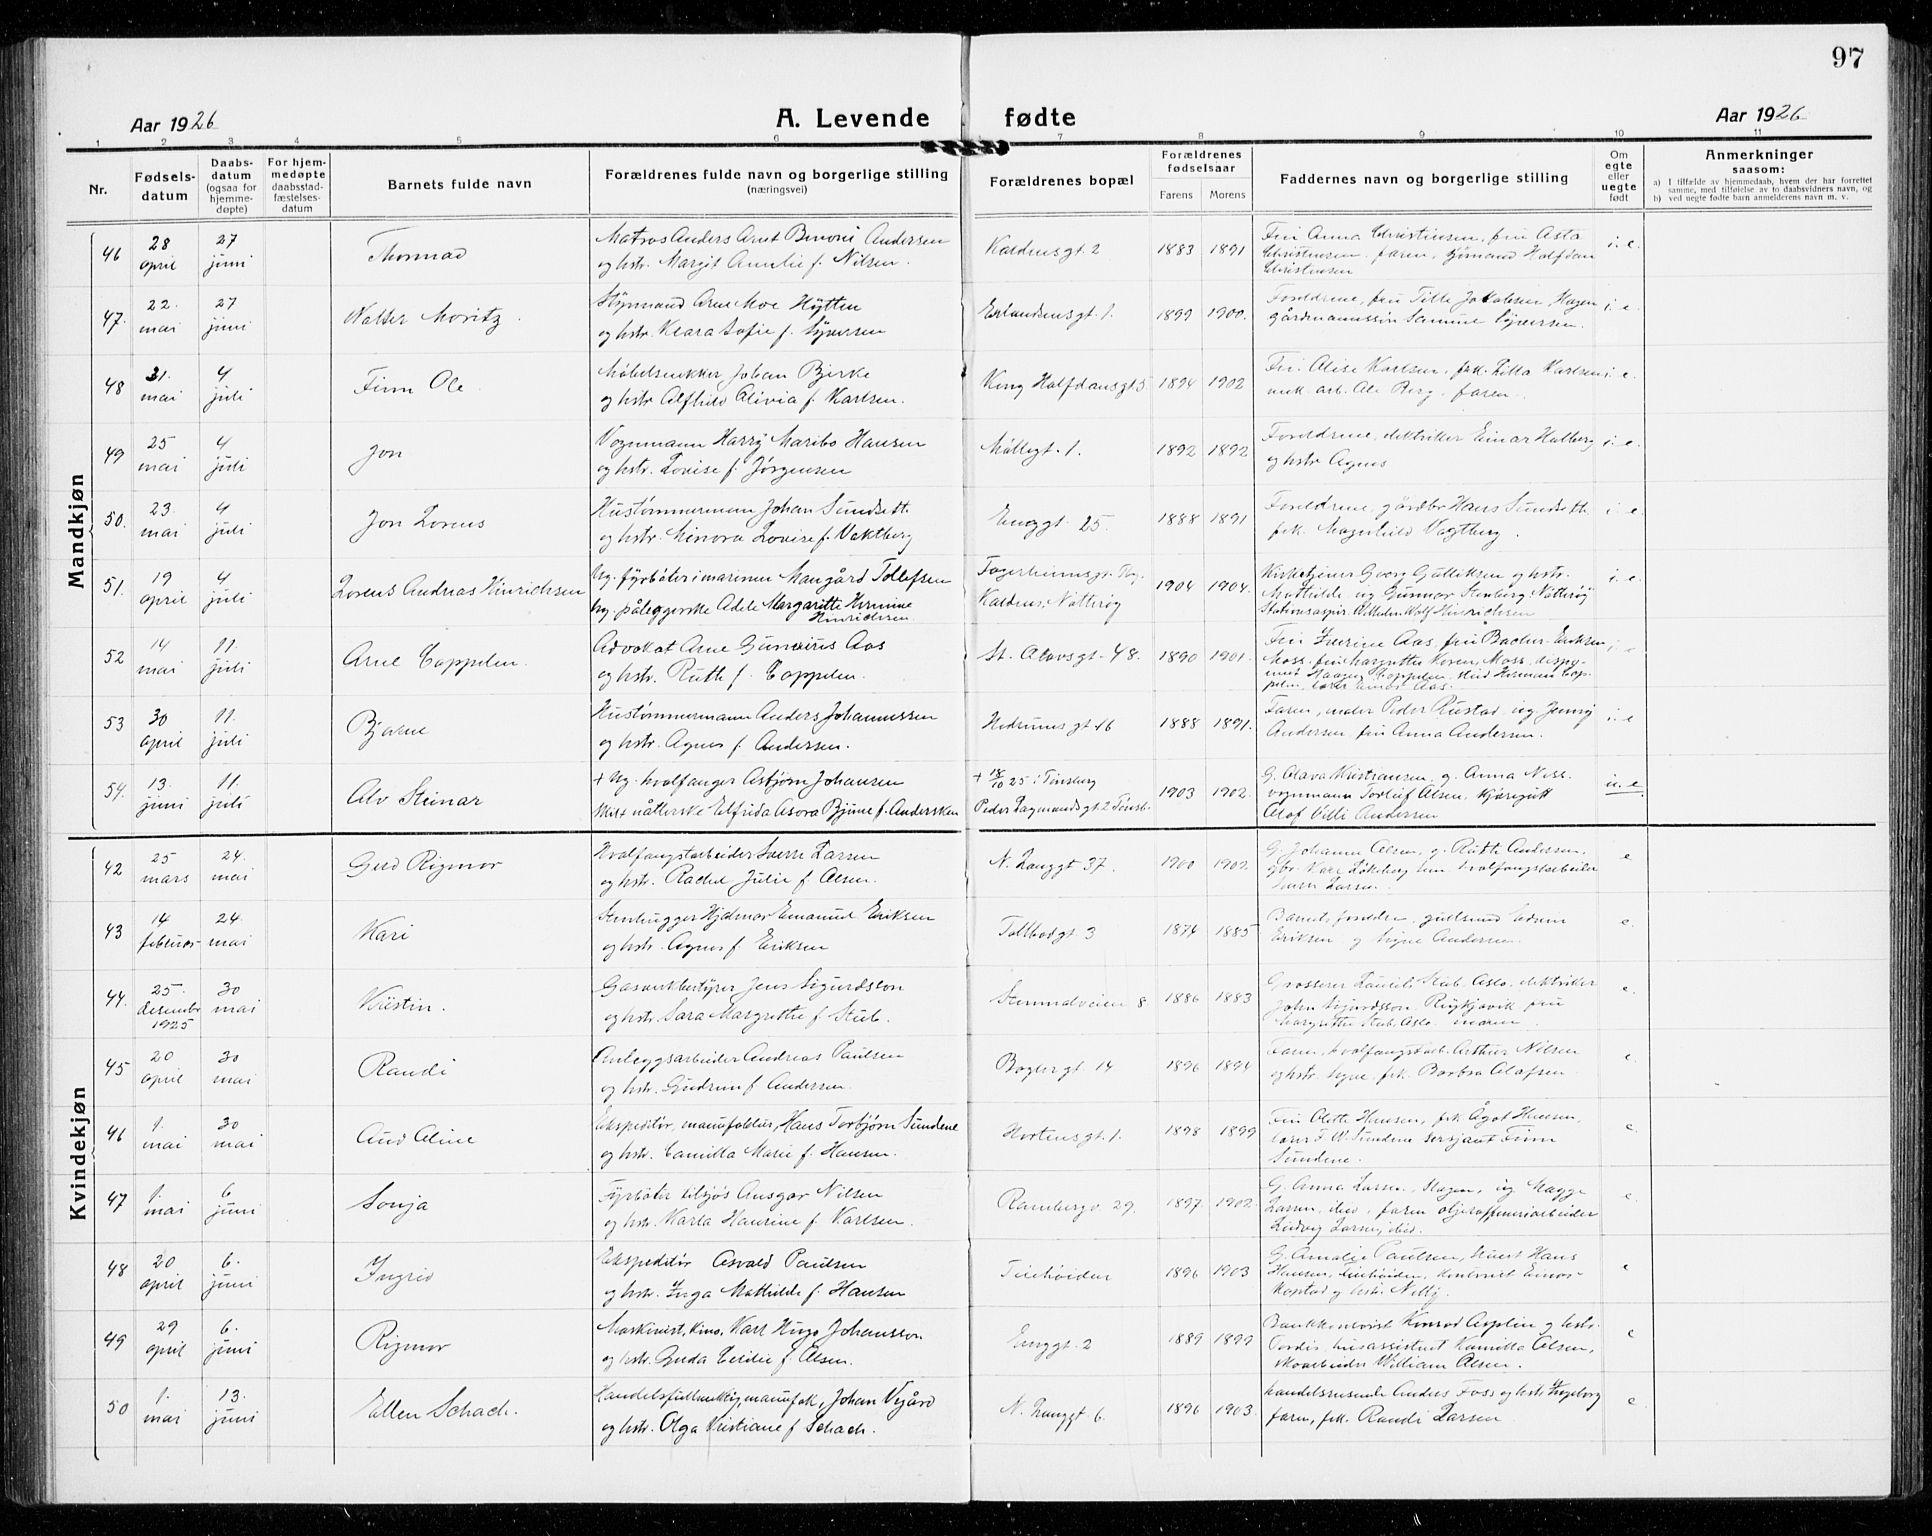 97
Aar 1926
A. Levende fødte
Aar 1926
1 2 3 4 5 6 7 8 9 10 11
Nr.
Fødsels-
datum
Daabs-
datum
(ogsaa for
hjemme-
døpte)
For hjem-
medøpte
daabsstad-
fæstelses-
datum
Barnets fulde navn
Forældrenes fulde navn og borgerlige stilling
(næringsvei)
Forældrenes bopæl
Forældrenes
fødselsaar
Farens Morens
Faddernes navn og borgerlige stilling
Om
egte
eller
uegte
født
Anmerkninger
saasom:
a) I tilfælde av hjemmedaab, hvem der har forrettet
samme, med tilføielse av to daabsvidners navn, og
b) ved uegte fødte barn anmelderens navn m. v.
Mandkjøn
46 28 april 27 juni Thormod
Matros Anders Arnt Benoni Andersen
og hstr. Margit Amalie f. Nilsen.
Kaldnesgt 2 1883 1891
Fru Anna Christensen, fru Asta
Christensen, faren, Halfdan
Christensen
i. e.
47. 22. mai 27 juni Walter Moritz.
Styrmand Arne Moe Hytten
og hstr. Klara Sofie f. Syversen
Erlandsensgt. 1. 1899 1900.
Foreldrene, fru Tilla Jakobsen Hagen
gårdmannssøn Syversen.
i. e.
48 31. mai 4 juli Finn Ole
Møbelsnekker Johan Bjerke
og hstr Alfhild Olivia f. Karlsen.
Kong Halfdansgt 5 1894 1902
Fru Elise Karlsen, frk. Karlsen
mek. arb. Ole Berg. faren.
i. e.
49 25 mai 4 juli Jon
Vognmann Harry Maribo Hansen
og hstr. Lovise f. Jørgensen
Møllegt. 1. 1892 1892
Foreldrene, elektriker Einar Halberg
og hstr Agnes
i. e.
50. 23. mai 4 juli Jon Lorens
Hustømmermann Johan Sundseth
og hstr. Minora Lovise f. Vektberg
Enggt. 25. 1888 1891
Foreldrene, gårdbr Hans Sundseth
frk. Magnhild Vogtberg.
i. e.
51. 19 april 4 juli Lorens Andreas Hinrichsen
Ug. fyrbøter i marinen Mangård Tollefsen
Ug. påleggerske Adele Margaritte Hermine
Hinrichsen
Kaldnes, Nøtterøy 1904 1904.
Kirketjener Georg Gulliksen og hstr.
Mathilde, ug Gunnar Stenberg Nøtterøy
Hinrichsen
52 14 mai 11. juli Arne Coppelen.
Advokat Arne Gunerius Aas
og hstr. Ruth f. Coppelen.
St. Olavsgt. 48. 1890 1901.
53 30 april 11. juli Bjarne
Hustømmermann Anders Johannessen
og hstr. Agnes f. Andersen.
Hedrumsgt 16 1888 1891.
Faren, Peder Rustad, ug. Jenny
Andersen, fru Anna Andersen.
i. e
54. 13. juni 11. juli Alv Steinar
+ Ug. hvalfanger Asbjørn Johansen
nåtlerske Elfrida Asora Bjune f. Andersken
+ 18/10 25 i Tønsberg
Peder Pagmandsgt. 2 Tønsb. 1903 1902.
G. Olava Kristiansen, g. Anna Ness.
vognmann Torleif Olsen, kjøregutt
Olaf Villi Andersen
u. e.
Kvindekjøn
42 25 mars 24. mai Gerd Rigmor
Hvalfangstarbeider Sverre Larsen
og hstr. Rachel Julie f. Olsen.
N. Langgt 37. 1900 1902.
G. Johanne Olsen, g. Ruth Andersen.
gbr. Kåre Løkeberg hvalfangstarbeider
Larsen.
e
43 14 februar 24. mai Kari
Stenhugger Hjalmar Emanuel Eriksen
og hstr. Agnes f. Eriksen
Tollbodgt 3 1874 1885
Barnets foreldre, gullsmed
Eriksen og Signe Andersen.
e.
44. 25. desember 1925 30 mai Kristin.
Gasverkbestyrer Jens Sigurdsson
og hstr. Sara Margrethe f. Stub.
8 1886 1883
Grosserer Stub, Oslo, elektriker
John Sigurdsson. Reykjavik fru
Margrethe Stub, Oslo. moren.
e.
45 20 april 30 mai Randi
Anleggsarbeider Andreas Paulsen
og hstr. Gudrun f. Andersen.
Baglergt 14 1896 1894
Faren, hvalfangstarb. Arthur Nilsen
og hstr. Signe, frk. Borbra Olafsen.
e.
46 1. mai 30 mai Aud Aline
Ekspeditør, manufaktur, Hans Torbjørn Sundene
og hstr. Camilla Marie f. Hansen.
Hortensgt. 1. 1898 1899
Fru Olette Hansen, frk Ågot Hansen,
lærer F. W. Sundene sersjant Finn
Sundene.
e.
47 1. mai 6 juni Sonja
Fyrbøter tilsjøs Ansgar Nilsen
og hstr. Karla Haurine f. Karlsen.
Rambergv. 29. 1897. 1902.
G. Anna Larsen, Hagen, ug Magga
Larsen, ibid, faren oljeraffineriarbeider
Ludvig Larsen, ibid.
e.
48 20 april 6. juni Ingrid
Ekspeditør Osvald Paulsen
og hstr. Inga Mathilde f. Hansen
Teiehøiden 1896 1903
G. Amalie Paulsen, Hans
Hansen, Teiehøiden, kontorist Einar
Kopstad og hstr. Nelly.
e
49 29 april 6. juni Rigmor
Maskinist, kino, Karl Hugo Johansson
og hstr. Guda Cecilie f. Olsen.
Enggt. 2 1889 1899
Bankkontorist Konrad og hstr.
Tordis, husassistent Kamilla Olsen,
skoarbeider William Olsen.
e
50 1. mai 13. juni Ellen Schach.
Handelsfullmektig, manufak., Johan Vegård
og hstr. Olga Kristiane f Schach.
N. Langgt. 6. 1896 1903.
handelsreisende Anders Foss og hstr Ingeborg
faren, frk. Randi Larsen
e.